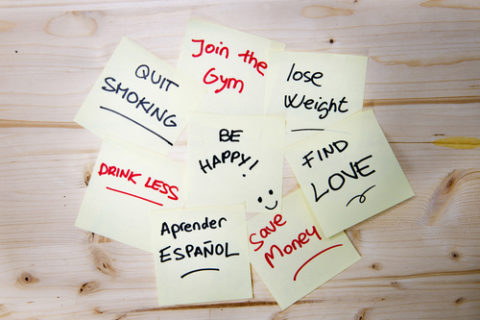 Join the
Gym
QUIT
SMOKING
lose
Weight
BE
HAPPY!
FIND
LOVE
DRINK LESS
Aprender
ESPAÑOL
Save
Money